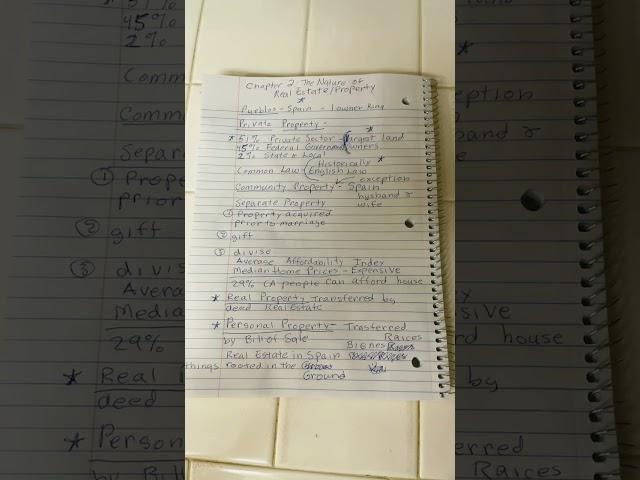 Chapter 2 - The Nature of
Real Estate/Property
*
Pueblos - Spain - 1 owner King
Private Property -
*
* 51% Private Sector - largest land
45% Federal Government owners
2% State & Local
Historically *
Common Law English Law
exception
Community Property - Spain
husband &
Separate Property wife
① Property acquired
prior to marriage
② gift
③ divise
Average Affordability Index
Median Home Prices - Expensive
29% CA people can afford house
* Real Property Transferred by
deed Real Estate
* Personal Property - Trasferred
by Bill of Sale Raices
Bienes
Real Estate in Spain
things rooted in the
Ground